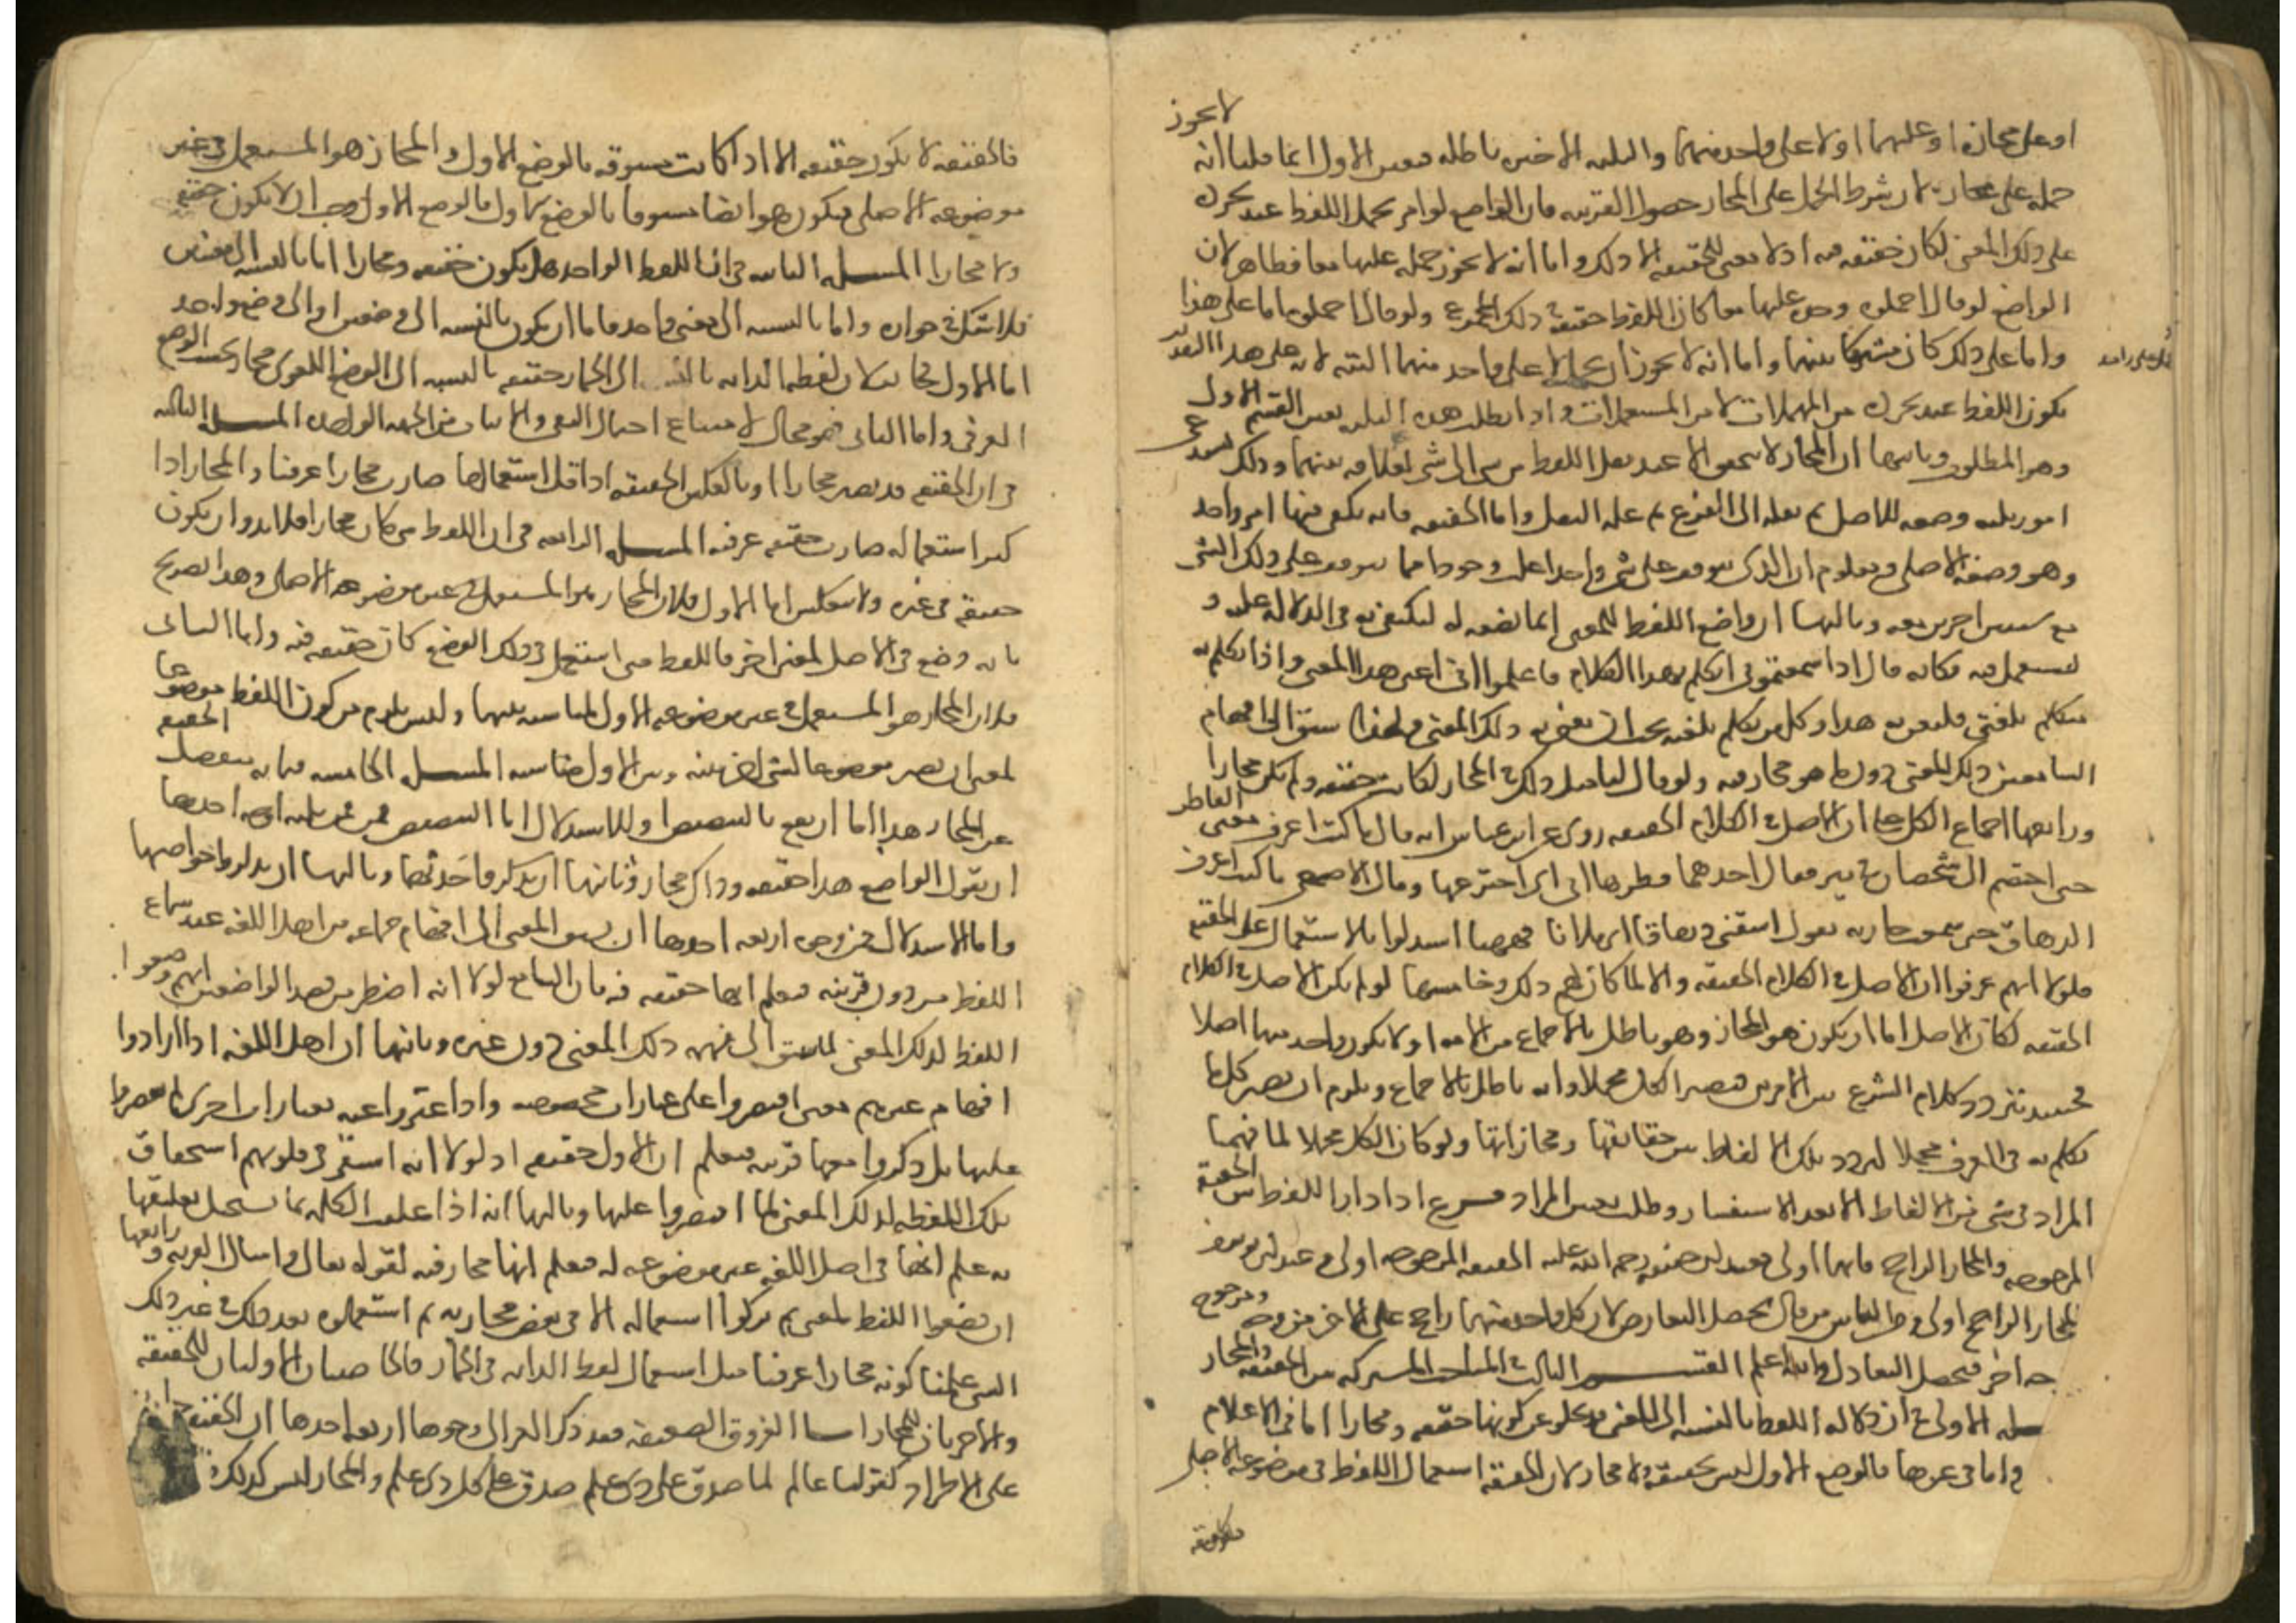 لا يجوز
او على مجازه او عليهما او لا على واحد منهما والثلثة الاخيرة باطلة فتعين الاول انما قلنا انه
حمله على مجازه لان شرط الحمل على المجاز حصول القرينة فان الواضع لو امر بحمل اللفظ عند تجرده
على ذلك المعنى لكان حقيقة فيه اذ لا معنى للحقيقة الا ذلك واما انه لا يجوز حمله عليهما معا فظاهر لان
الواضع لو قال احملوه وحده عليهما معا كان اللفظ حقيقة في ذلك المجموع ولو قال احملوه اما على هذا
واما على ذلك كان مشتركا بينهما واما انه لا يجوز ان يحمل لا على واحد منهما البتة لانه على هذا التقدير
يكون اللفظ عند تجرده من المهملات لا من المستعملات واذا بطلت هذه الثلثة تعين القسم الاول
وهو المطلوب وثانيها ان المجاز لا يتحقق الا عند نقل اللفظ من شي الى شي لعلاقة بينهما وذلك يستدعي
امورا ثلثة وضعه للاصل ثم نقله الى الفرع ثم علة النقل واما الحقيقة فانه يكفي فيها امر واحد
وهو وضعه الاصلي ومعلوم ان الذي يتوقف على شي واحد اغلب وجودا مما يتوقف على ذلك الشي
مع شيين اخرين معه وثالثها ان واضع اللفظ للمعنى انما يضعه له ليكتفى به في الدلالة عليه و
ليستعمل فيه فكانه قال اذا سمعتموني اتكلم بهذا الكلام فاعلموا اني اعني هذا المعنى واذا تكلم به
متكلم بلغتي فليعن به هذا وكل من تكلم بلغته يجب ان يعني به ذلك المعنى ولهذا سبق الى افهام
السامعين ذلك المعنى دون ما هو مجاز فيه ولو قال لنا مثل ذلك في المجاز لكانت حقيقة ولم تكن مجازا
ورابعها اجماع الكل على ان الاصل في الكلام الحقيقة روي عن ابن عباس انه قال ما كنت اعرف معنى الفاطر
حتى اختصم الي شخصان في بير فقال احدهما فطرها ابي اي اخترعها وقال الاصمعي ما كنت اعرف
الدهاق حتى سمعت جارية تقول اسقني دهاقا اي ملانا فههنا استدلوا بالاستعمال على الحقيقة
فلولا انهم عرفوا ان الاصل في الكلام الحقيقة والا لما كان لهم ذلك وخامسها لو لم يكن الاصل في الكلام
الحقيقة لكان الاصل اما ان يكون هو المجاز وهو باطل بالاجماع من الامة او لا يكون واحد منهما اصلا
فحينئذ يتردد كلام الشرع بين الامرين فيصير الكل مجملا وانه باطل بالاجماع ويلزم ان يصير كل ما
يتكلم به في العرف مجملا لتردد تلك الالفاظ بين حقايقها ومجازاتها ولو كان الكل مجملا لما فهمنا
المراد في شي من الالفاظ الا بعد الاستفسار وطلب تعيين المراد فرع اذا دار اللفظ بين الحقيقة
المرجوحة والمجاز الراجح فايهما اولى فعند ابي حنيفة رحمة الله عليه الحقيقة المرجوحة اولى وعند ابي يوسف
المجاز الراجح اولى ومن الناس من قال يحصل التعارض لان كل واحد منهما راجح على الاخر من وجه ومرجوح
من وجه اخر فيحصل التعادل والله اعلم القسم الثالث في المباحث المشتركة بين الحقيقة والمجاز
المسئلة الاولى في ان دلالة اللفظ بالنسبة الى المعنى قد تخلو عن كونها حقيقة ومجازا اما في الاعلام
واما في غيرها فالوضع الاول ليس بحقيقة ولا مجاز لان الحقيقة استعمال اللفظ في موضوعه الاصلي
فالحقيقة
فالحقيقة لا يكون حقيقة الا اذا كانت مسبوقة بالوضع الاول والمجاز هو المستعمل في غير
موضوعه الاصلي فيكون هو ايضا مسبوقا بالوضع الاول فالوضع الاول وجب ان لا يكون حقيقة
ولا مجازا المسئلة الثانية في ان اللفظ الواحد هل يكون حقيقة ومجازا اما بالنسبة الى معنيين
فلا شك في جوازه واما بالنسبة الى معنى واحد فاما ان يكون بالنسبة الى وضعين او الى وضع واحد
اما الاول فجائز لان لفظة الدابة بالنسبة الى الحمار حقيقة بالنسبة الى الوضع اللغوي مجاز بحسب الوضع
العرفي واما الثاني فهو محال لامتناع اجتماع النفي والاثبات من الجهة الواحدة المسئلة الثالثة
في ان الحقيقة قد تصير مجازا وبالعكس الحقيقة اذا قل استعمالها صارت مجازا عرفيا والمجاز اذا
كثر استعماله صار حقيقة عرفية المسئلة الرابعة في ان اللفظ متى كان مجازا فلا بد وان يكون
حقيقة في غيره ولا ينعكس اما الاول فلان المجاز هو المستعمل في غير موضوعه الاصلي وهذا تصريح
بانه وضع في الاصل لمعنى اخر فاللفظ متى استعمل في ذلك الوضع كان حقيقة فيه واما الثاني
فلان المجاز هو المستعمل في غير موضوعه الاول لمناسبة بينهما وليس يلزم من كون اللفظ موضوعا
لمعنى ان يصير موضوعا لشي اخر بينه وبين الاول مناسبة المسئلة الخامسة فيما به تنفصل الحقيقة
عن المجاز هذا اما ان يقع بالتنصيص او بالاستدلال اما التنصيص فمن ثلثة اوجه احدها
ان يقول الواضع هذا حقيقة وذاك مجاز وثانيها ان يذكر واحدهما وثالثها ان يذكروا خواصهما
واما الاستدلال فمن وجوه اربعة احدها ان يسبق المعنى الى افهام جماعة من اهل اللغة عند سماع
اللفظ من دون قرينة فيعلم انها حقيقة فيه فان السامع لولا انه اضطر من قصد الواضعين انهم وضعوا
اللفظ لذلك المعنى لما سبق الى فهمه ذلك المعنى دون غيره وثانيها ان اهل اللغة اذا ارادوا
افهام غيرهم معنى اقتصروا على عبارات مخصوصة واذا عبروا عنه بعبارات اخرى لم يقتصروا
عليها بل ذكروا معها قرينة فيعلم ان الاول حقيقة اذ لولا انه استقر في قلوبهم استحقاق
تلك اللفظة لذلك المعنى لما اقتصروا عليها وثالثها انه اذا علقت الكلمة بما يستحيل تعليقها
به علم انها في اصل اللغة غير موضوعة له فيعلم انها مجاز فيه لقوله تعالى واسأل القرية ورابعها
ان يضعوا اللفظ لمعنى ثم تركوا استعماله الا في بعض مجازيه ثم استعملوه بعد ذلك في غير ذلك
الشي علمنا كونه مجازا عرفيا مثل استعمال لفظ الدابة في الحمار فالخاصيتان الاوليان للحقيقة
والاخريان للمجاز اما الفروق الضعيفة فقد ذكر الغزالي وجوها اربعة احدها ان الحقيقة جارية
على الاطراد كقولنا عالم لما صدق على ذي علم صدق على كل ذي علم والمجاز ليس كذلك